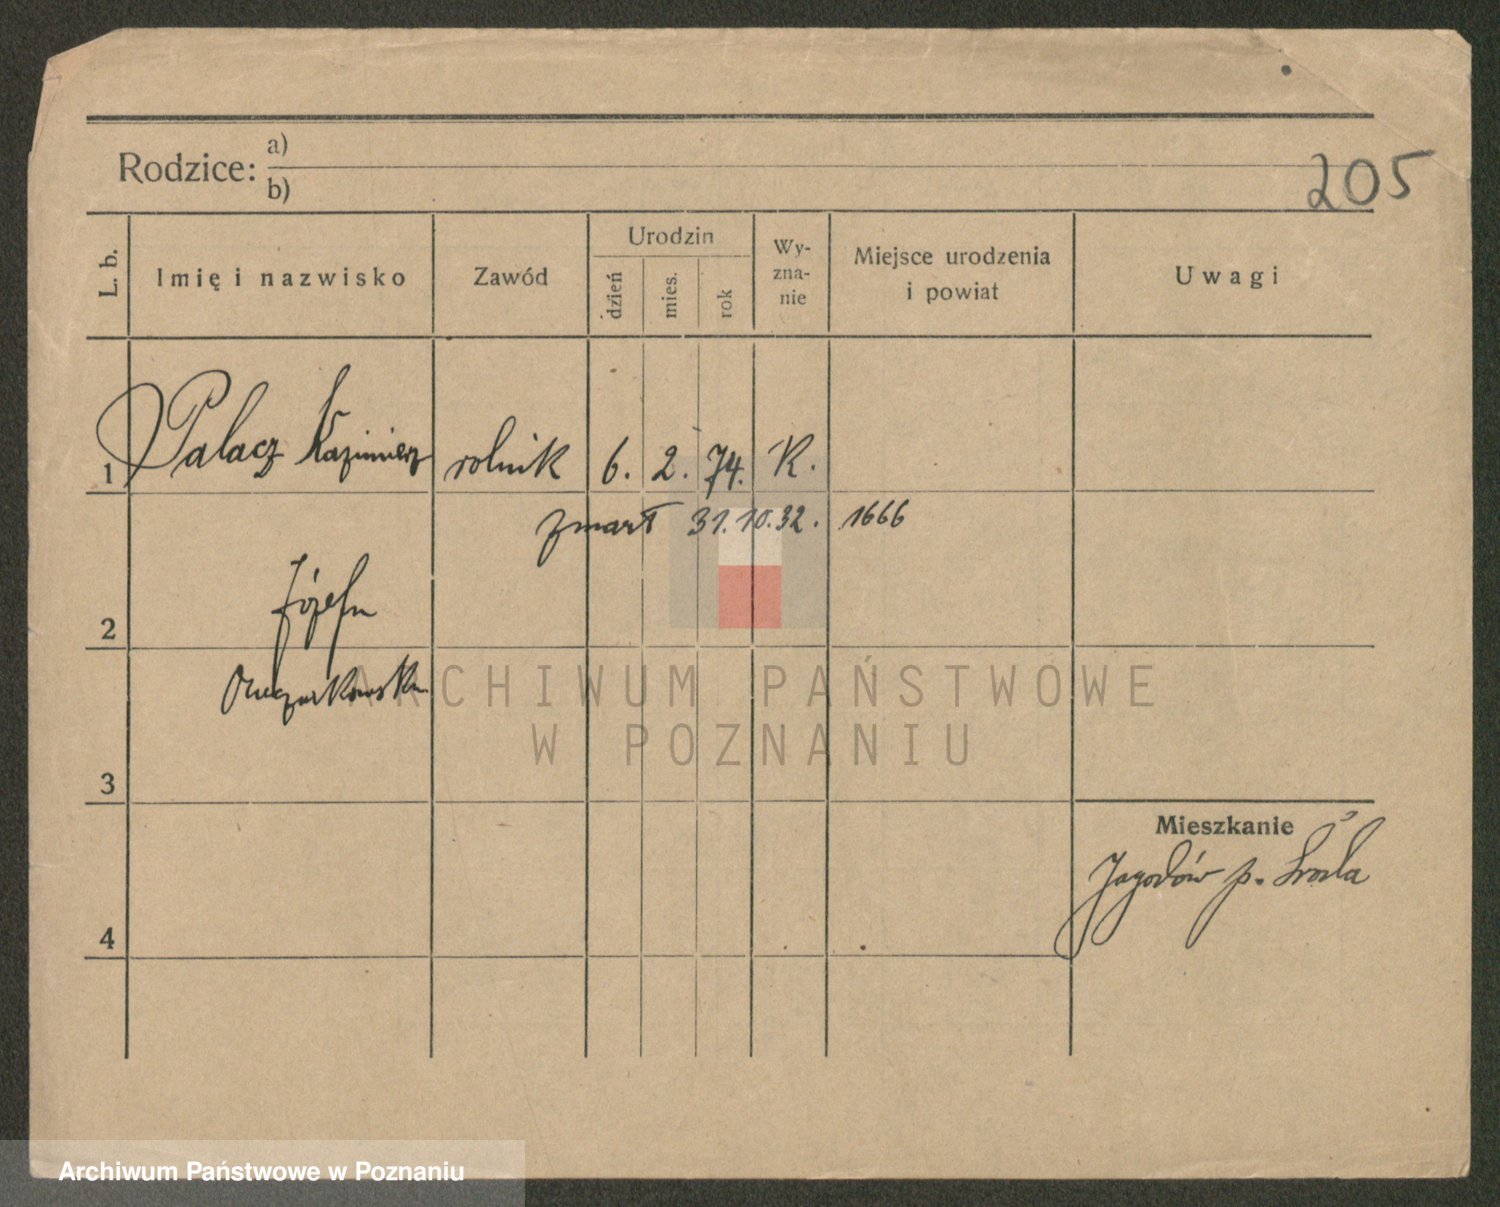 Rodzice: a)
b)
205
L. b.
Imię i nazwisko
Zawód
Urodzin
dzień
mies.
rok
Wy-
zna-
nie
Miejsce urodzenia
i powiat
Uwagi
1 Palacz Kazimierz rolnik 6. 2. 74. K.
zmarł 31.10.32. 1666
2
Józefa
3
Mieszkanie
Jagodów p. Środa
4
ARCHIWUM PAŃSTWOWE
W POZNANIU
Archiwum Państwowe w Poznaniu